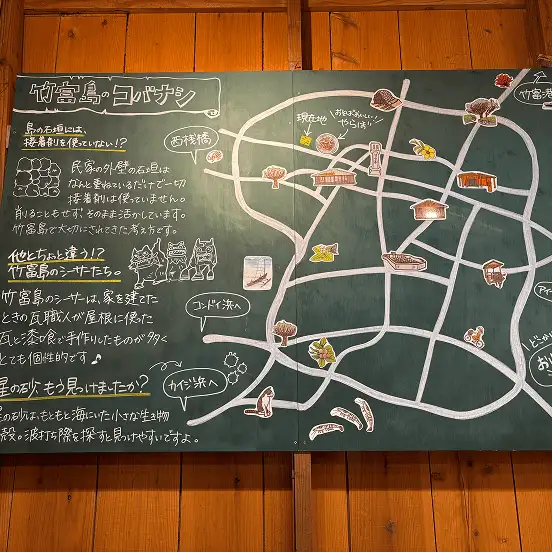 竹富島のコバナシ
島の石垣には、
接着剤を使っていない!?
民家の外壁の石垣は
なんと重ねているだけで一切
接着剤は使っていません。
削ることもせずそのまま活かしています。
竹富島で大切にされてきた考え方です。
他とちょっと違う!?
竹富島のシーサーたち。
竹富島のシーサーは、家を建てた
ときの瓦職人が屋根に使った
瓦と漆喰で手作りしたものが多く
とても個性的です♪
星の砂、もう見つけましたか?
星の砂は、もともと海にいた小さな生き物
殻。波打ち際を探すと見つけやすいですよ。
西桟橋
現在地
やらぼ
コンドイ浜へ
カイジ浜へ
竹富港
アイ